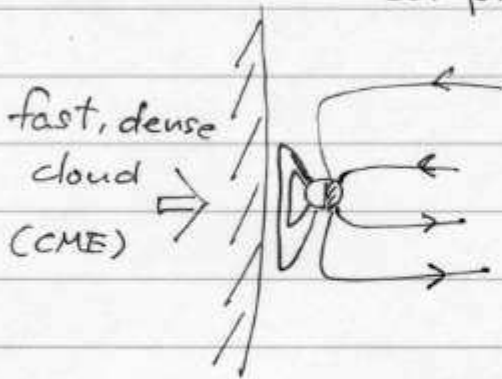 fast, dense
cloud
(CME)